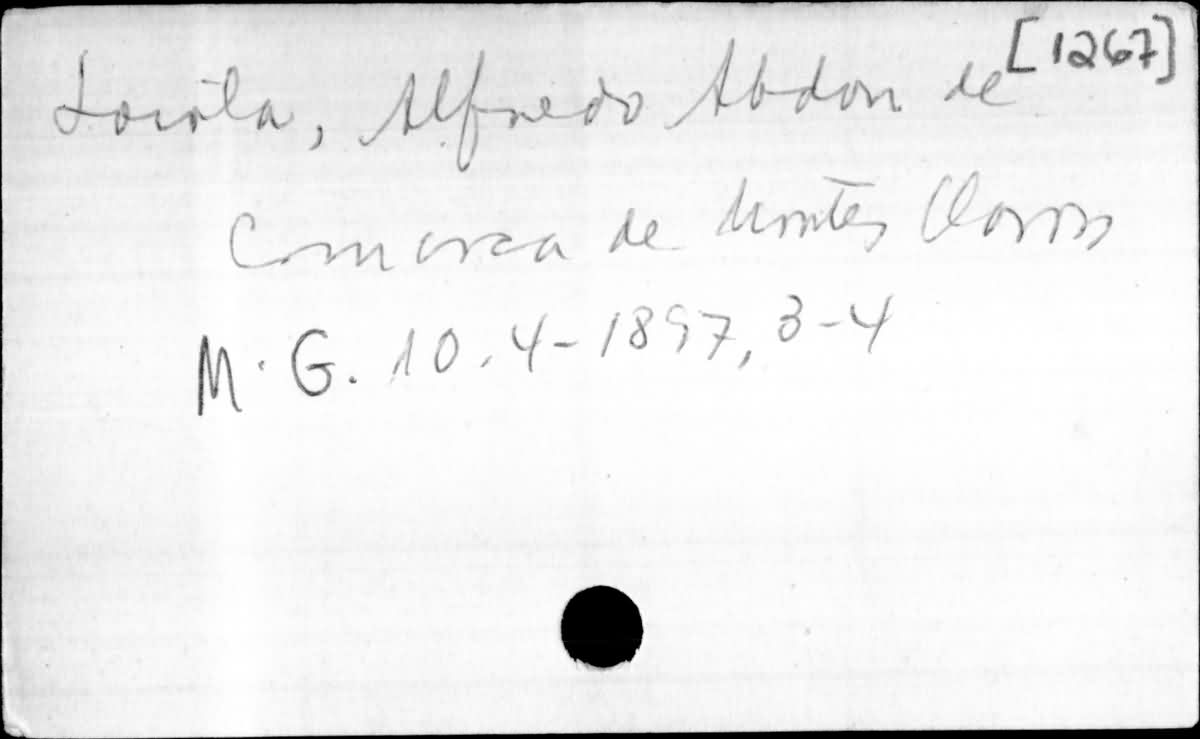 [1267]
Loiola, Alfredo Abdon de
Comarca de Montes Claros
M. G. 10.4-1897, 3-4